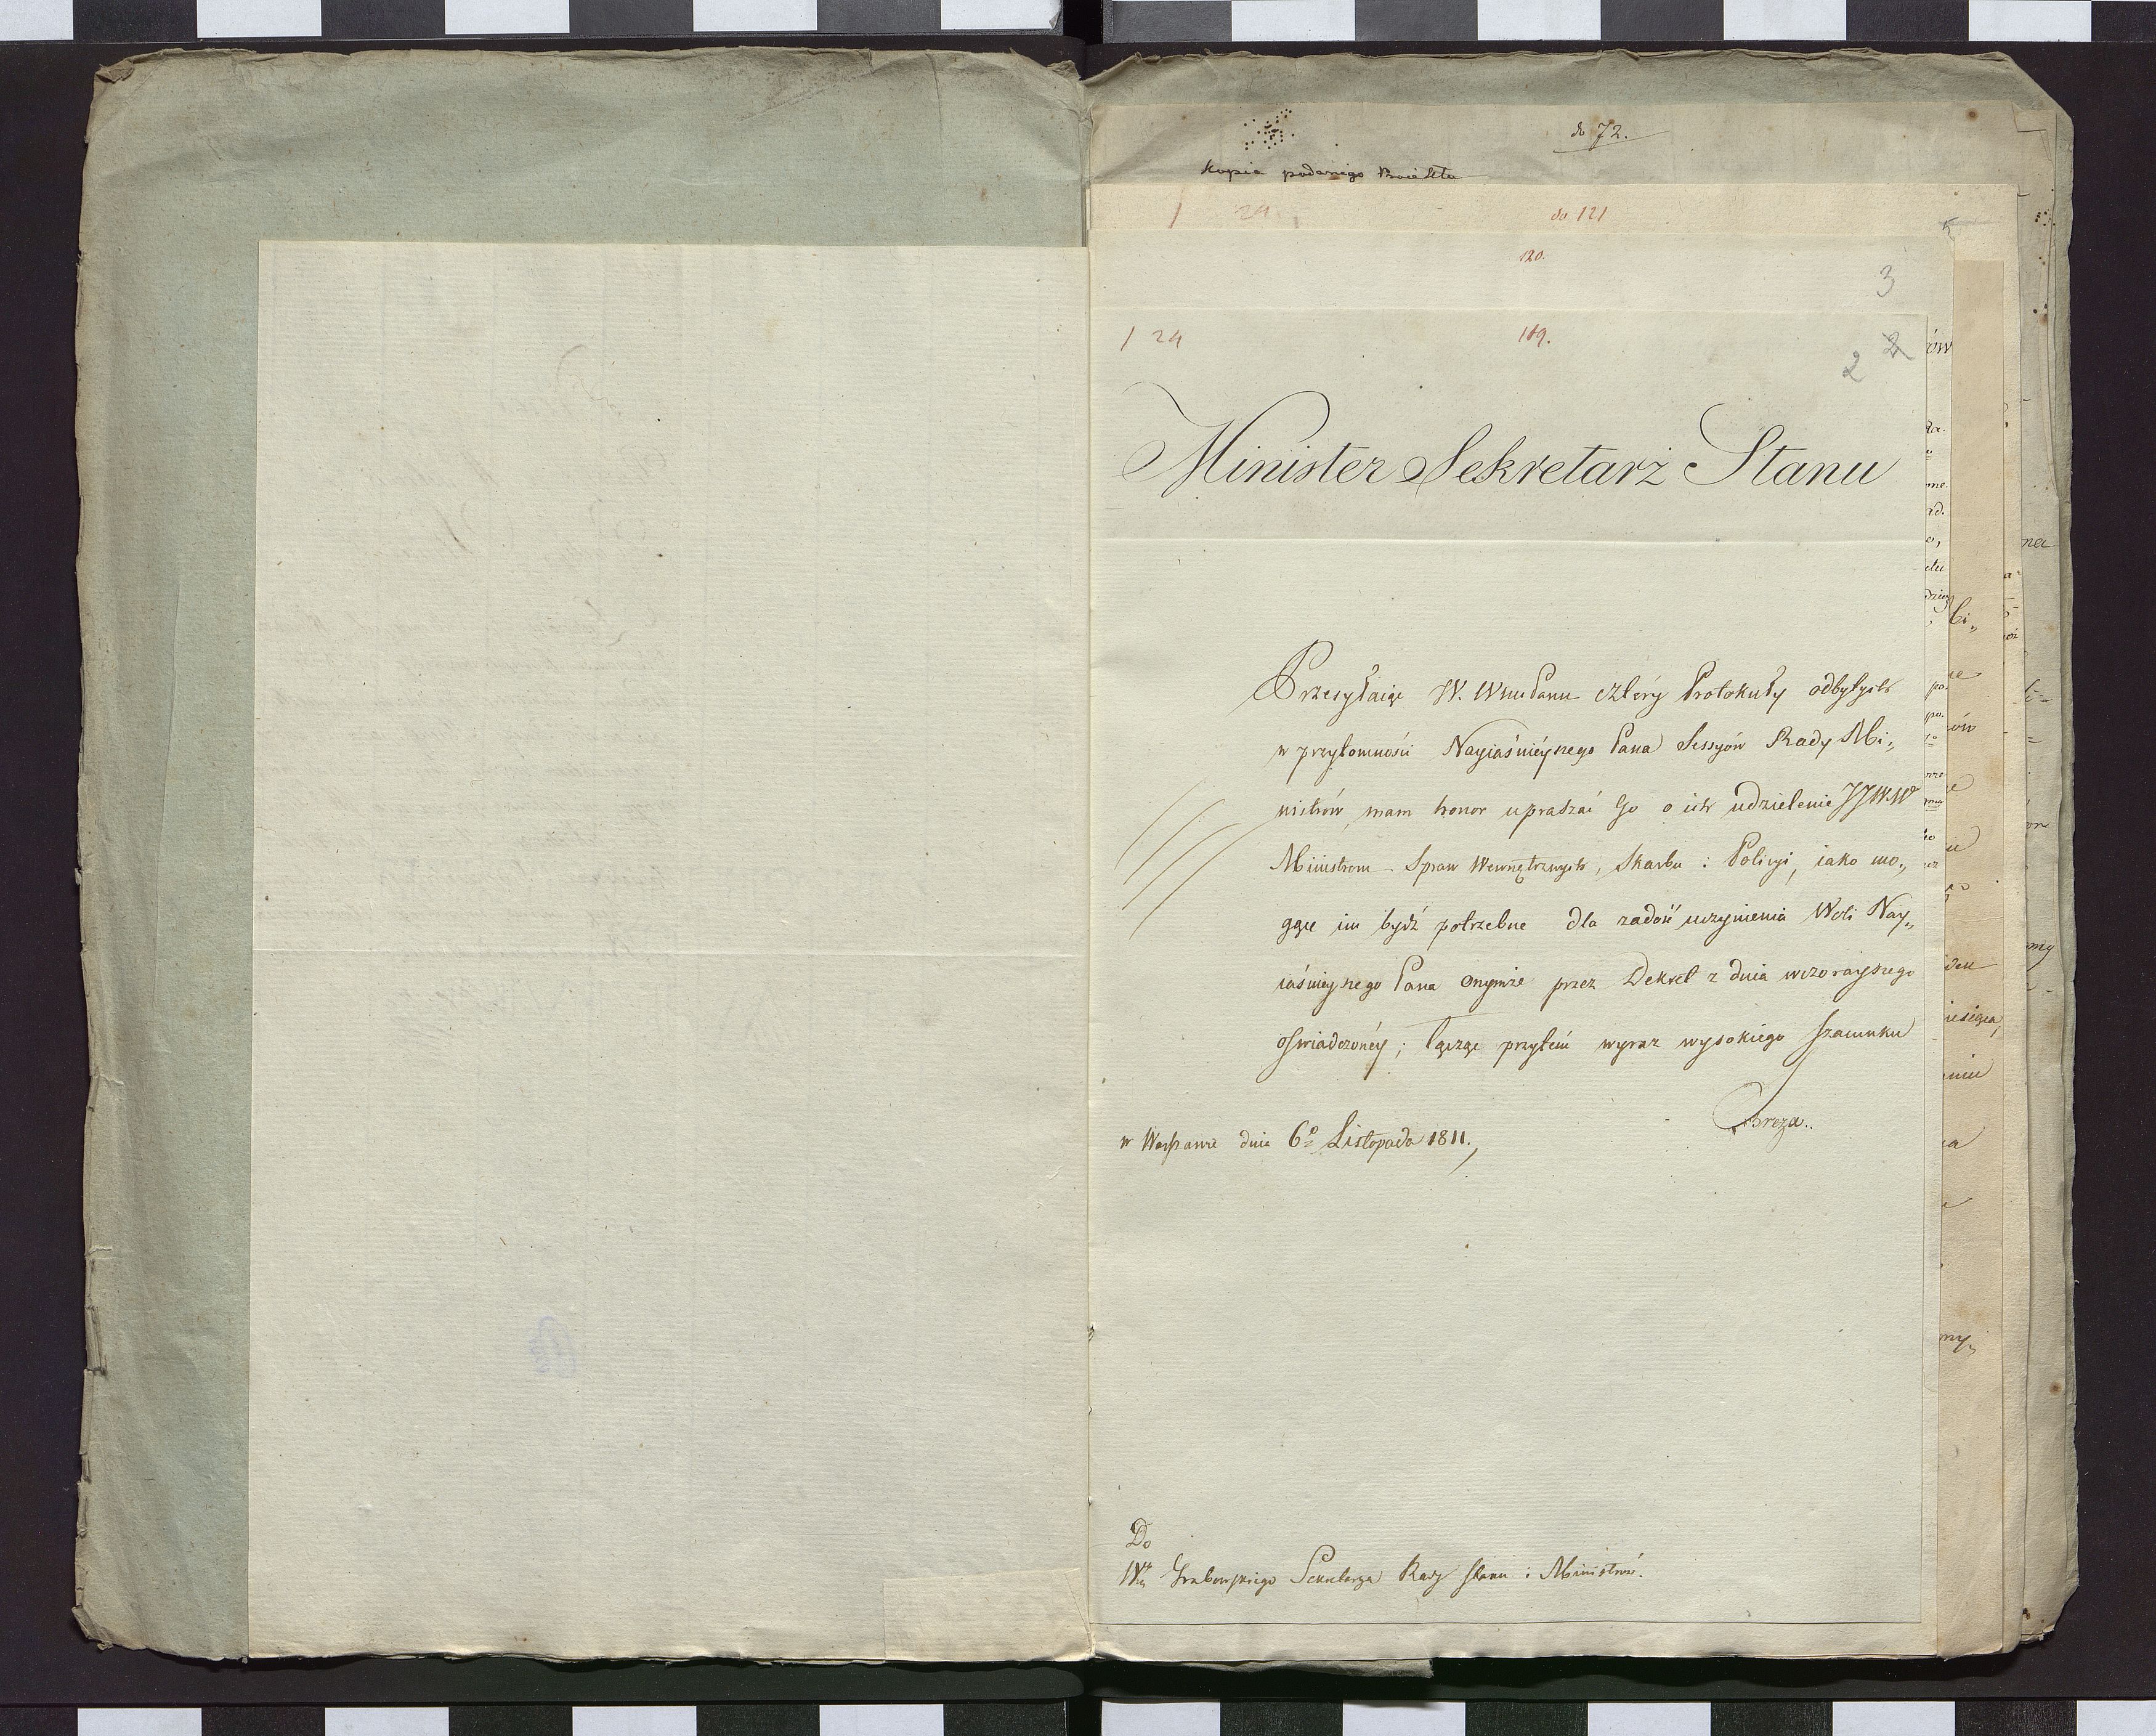 do 72.
Kopia podanego
1 24 do 121
120.
3
1 24 119. 2
2
Minister Sekretarz Stanu
Przesyłaiąc W. Wmu Panu cztéry Protokuły odbytych
w przytomności Nayiaśniéyszego Pana Sessyów Rady Mi„
nistrów, mam honor upraszać Go o ich udzielenie JJWW
Ministrom Spraw Wewnętrznych, Skarbu i Policyi, iako mo„
gące im bydź potrzebne dla zadość uczynienia Woli Nay„
iaśnieyszego Pana onymże przez Dekret z dnia wczorayszego
oświadczonéy; łącząc przytém wyraz wysokiego szacunku
Breza.
w Warszawie dnia 6º Listopada 1811.
Do
W Grabowskiego Sekretarza Rady Stanu i Ministrów.